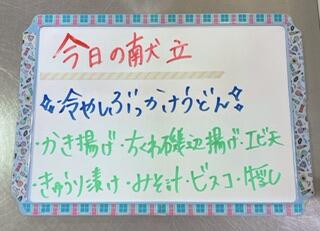 今日の献立
冷やしぶっかけうどん
・かき揚げ・ちくわ磯辺揚げ・エビ天
・きゅうり漬け・みそ汁・ビスコ・